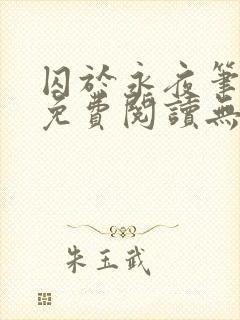 囚於永夜筆
免費閱讀無
朱玉武